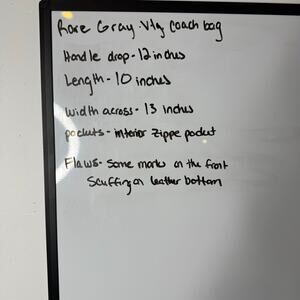 Rare Gray Vtg Coach bag
Handle drop - 12 inches
Length - 10 inches
Width across - 13 inches
pockets - interior zippe pocket
Flaws - Some marks on the front
Scuffing on leather bottom